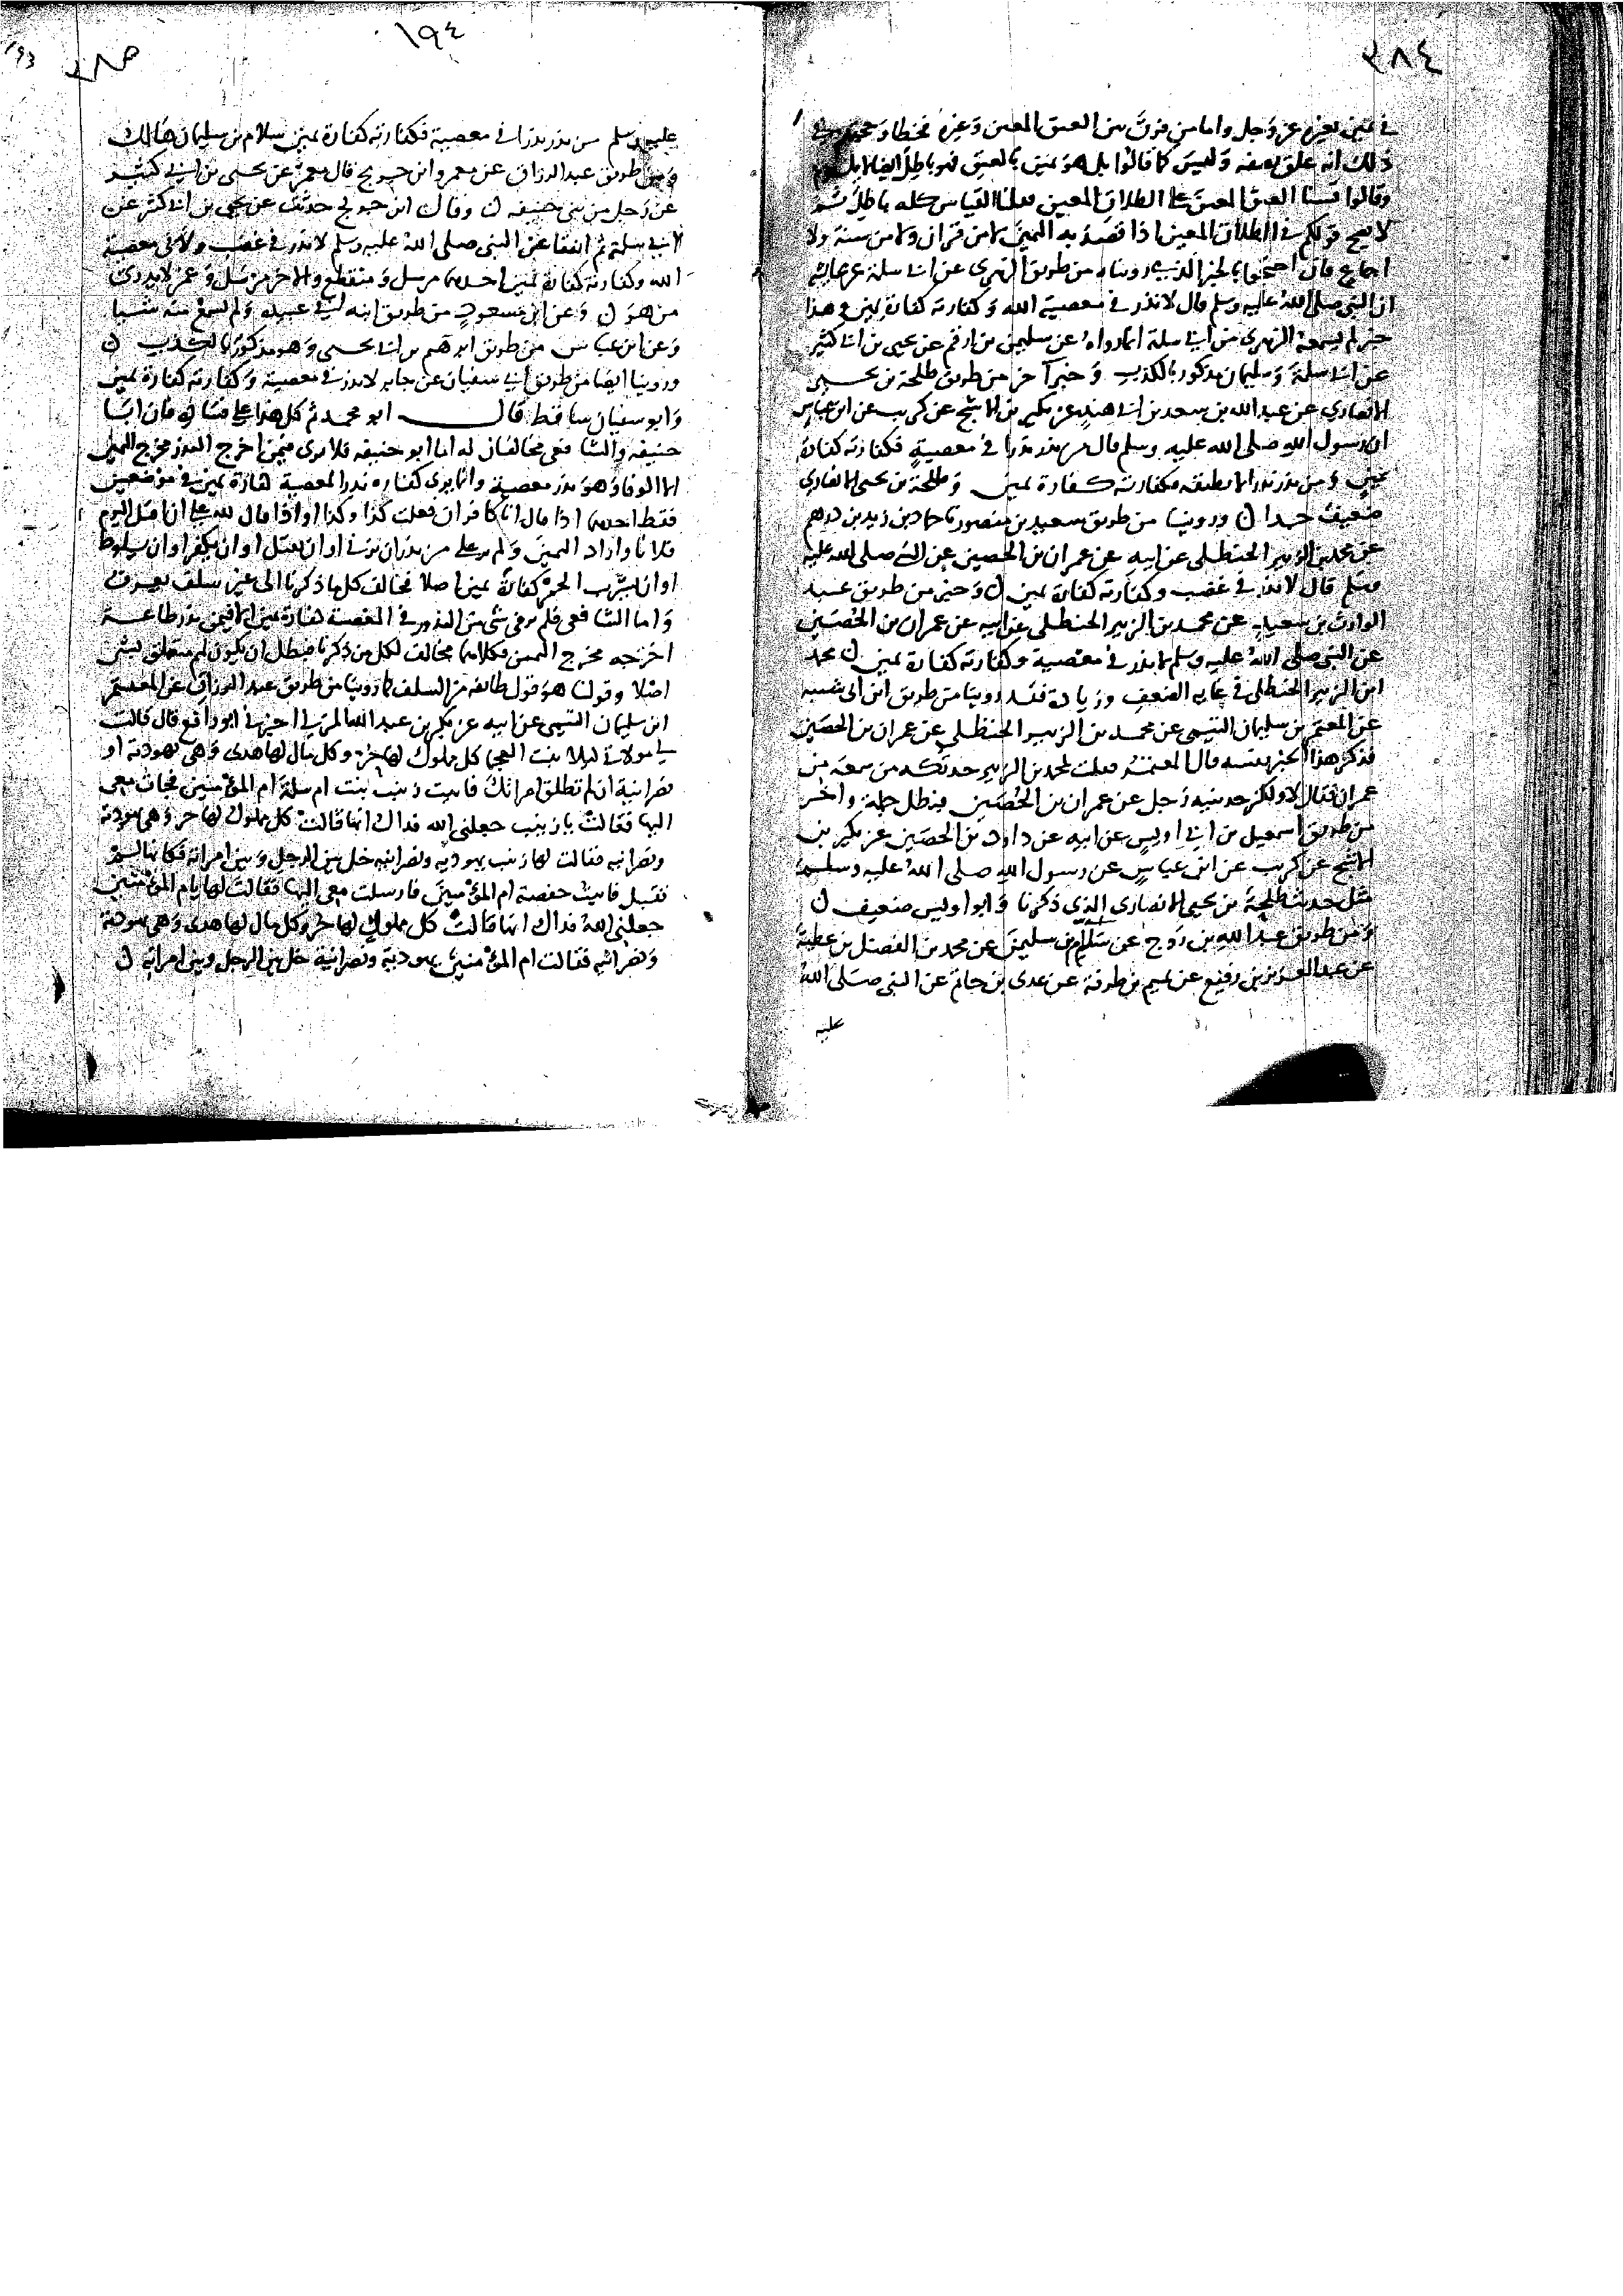 ٣٨٤
في يمين بغيره عز وجل واما من فرق بين العتق المعين وغيره فخطا وحجتهم في
ذلك انه علق بصفه وليس كما قالوا بل هو يمين بالعتق فهو باطل ايضا لا يلزم
وقالوا قسنا العتق المعين على الطلاق المعين قلنا القياس كله باطل ثم
لا يصح قولكم في الطلاق المعين اذا قصد به اليمين لا من قران ولا من سنة ولا
اجماع فان احتجوا بالخبر الذي رويناه من طريق الزهري عن ابي سلمة عن عايشة
ان النبي صلى الله عليه وسلم قال لا نذر في معصية الله وكفارته كفارة يمين فهذا
خبر لم يسمعه الزهري من ابي سلمة انما رواه عن سليمن بن ارقم عن يحيى بن ابي كثير
عن ابي سلمة وسليمان مذكور بالكذب وخبر آخر من طريق طلحة بن يحيى
الانصاري عن عبد الله بن سعيد بن ابي هند عن بكير بن الاشج عن كريب عن ابن عباس
ان رسول الله صلى الله عليه وسلم قال من نذر نذرا في معصية فكفارته كفارة
يمين ومن نذر نذرا لا يطيقه فكفارته كفارة يمين وطلحة بن يحيى الانصاري
ضعيف جدا ن وروينا من طريق سعيد بن منصور نا حماد بن زيد بن درهم
عن محمد بن الزبير الحنظلي عن ابيه عن عمران بن الحصين عن النبي صلى الله عليه
وسلم قال لا نذر في غضب وكفارته كفارة يمين ن وخبر من طريق عبد
الوارث بن سعيد عن محمد بن الزبير الحنظلي عن ابيه عن عمران بن الحصين
عن النبي صلى الله عليه وسلم لا نذر في معصية وكفارته كفارة يمين ن محمد
ابن الزبير الحنظلي في غاية الضعف وزيادة فقد روينا من طريق ابن ابي شيبة
عن المعتمر بن سليمان التيمي عن محمد بن الزبير الحنظلي عن عمران بن الحصين
فذكر هذا الخبر نفسه قال المعتمر فقلت لمحمد بن الزبير حدثكه من سمعه من
عمران فقال لا ولكن حدثنيه رجل عن عمران بن الحصين فبطل جملة وآخر
من طريق اسمعيل بن ابي اويس عن ابيه عن داود بن الحصين عن بكير بن
الاشج عن كريب عن ابن عباس عن رسول الله صلى الله عليه وسلم
مثل حديث طلحة بن يحيى الانصاري الذي ذكرنا وابو اويس ضعيف ن
ومن طريق عبد الله بن روح عن سلام بن سليمن عن محمد بن الفضل بن عطية
عن عبد العزيز بن رفيع عن تميم بن طرفة عن عدي بن حاتم عن النبي صلى الله
عليه
١٩٤
٣٨٥
193
عليه وسلم من نذر نذرا في معصية فكفارته كفارة يمين سلام بن سليمان هالك
ومن طريق عبد الرزاق عن معمر وابن جريج قال معمر عن يحيى بن ابي كثير
عن رجل من بني حنيفه ن وقال ابن جريج حدثت عن يحيى بن ابي كثير عن
ابي سلمة ثم اتفقا عن النبي صلى الله عليه وسلم لا نذر في غضب ولا في معصية
الله وكفارته كفارة يمين احدهما مرسل ومنقطع والآخر مرسل وعمن لا يدرى
من هو ن وعن ابن مسعود من طريق ابنه ابي عبيده ولم يسمع منه شيا
وعن ابن عباس من طريق ابرهيم بن ابي يحيى وهو مذكور بالكذب ن
وروينا ايضا من طريق ابي سفيان عن جابر لا نذر في معصية وكفارته كفارة يمين
وابو سفيان ساقط قال ابو محمد ثم كل هذا على فان ابا
حنيفه والشافعي مخالفان له اما ابو حنيفه فلا يرى فيمن اخرج النذر مخرج اليمين
الا الوفا وهو نذر معصية وانما يرى كفاره نذر المعصية كفارة يمين في موضعين
فقط احدهما اذا قال انا كافر ان فعلت كذا وكذا او اذا قال لله علي ان اقتل اليوم
فلانا واراد اليمين ولم ير على من نذر ان يزني او ان يقتل او ان يكفر او ان يلوط
او ان يشرب الخمر كفارة يمين اصلا فخالف كل ما ذكرنا الى غير سلف يعرف
واما الشافعي فلم ير في شي من النذور في المعصية كفارة يمين الا فيمن نذر طاعة
اخرجه مخرج اليمين فكلاهما مخالف لكل من ذكرنا فبطل ان يكون لهم متعلق بشي
اصلا وقولنا هو قول طائفه من السلف كما روينا من طريق عبد الرزاق عن المعتمر
ابن سليمان التيمي عن ابيه عن بكر بن عبد الله المزني اخبرني ابو رافع قال قالت
لي مولاتي ليلا بنت العجما كل مملوك لها حر وكل مال لها هدى وهي يهودية او
نصرانية ان لم تطلق امراتك فاتيت زينب بنت ام سلمة ام المؤمنين فجات معي
اليها فقالت يا زينب جعلني الله فداك انها قالت كل مملوك لها حر وهي يهودية
ونصرانيه فقالت لها زينب يهوديه ونصرانيه خل بين الرجل وبين امراته فكانها لم
تقبل فاتيت حفصة ام المؤمنين فارسلت معي اليها فقالت لها يام المؤمنين
جعلني الله فداك انها قالت كل مملوك لها حر وكل مال لها هدى وهي يهودية
ونصرانيه فقالت ام المؤمنين يهودية ونصرانية خل بين الرجل وبين امراته ن